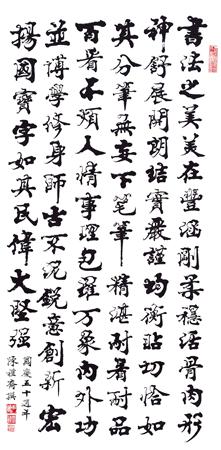 書法之美美在豐涵剛柔穩活骨肉形
神舒展開朗結實嚴謹均衡貼切恰如
其分筆無妄下笔筆精湛耐看耐品
百看不煩人情事理包羅萬象內外功
並博學修身師古不泥銳意創新宏
揚國寶字如其民偉大堅强
國慶五十週年
陳撰